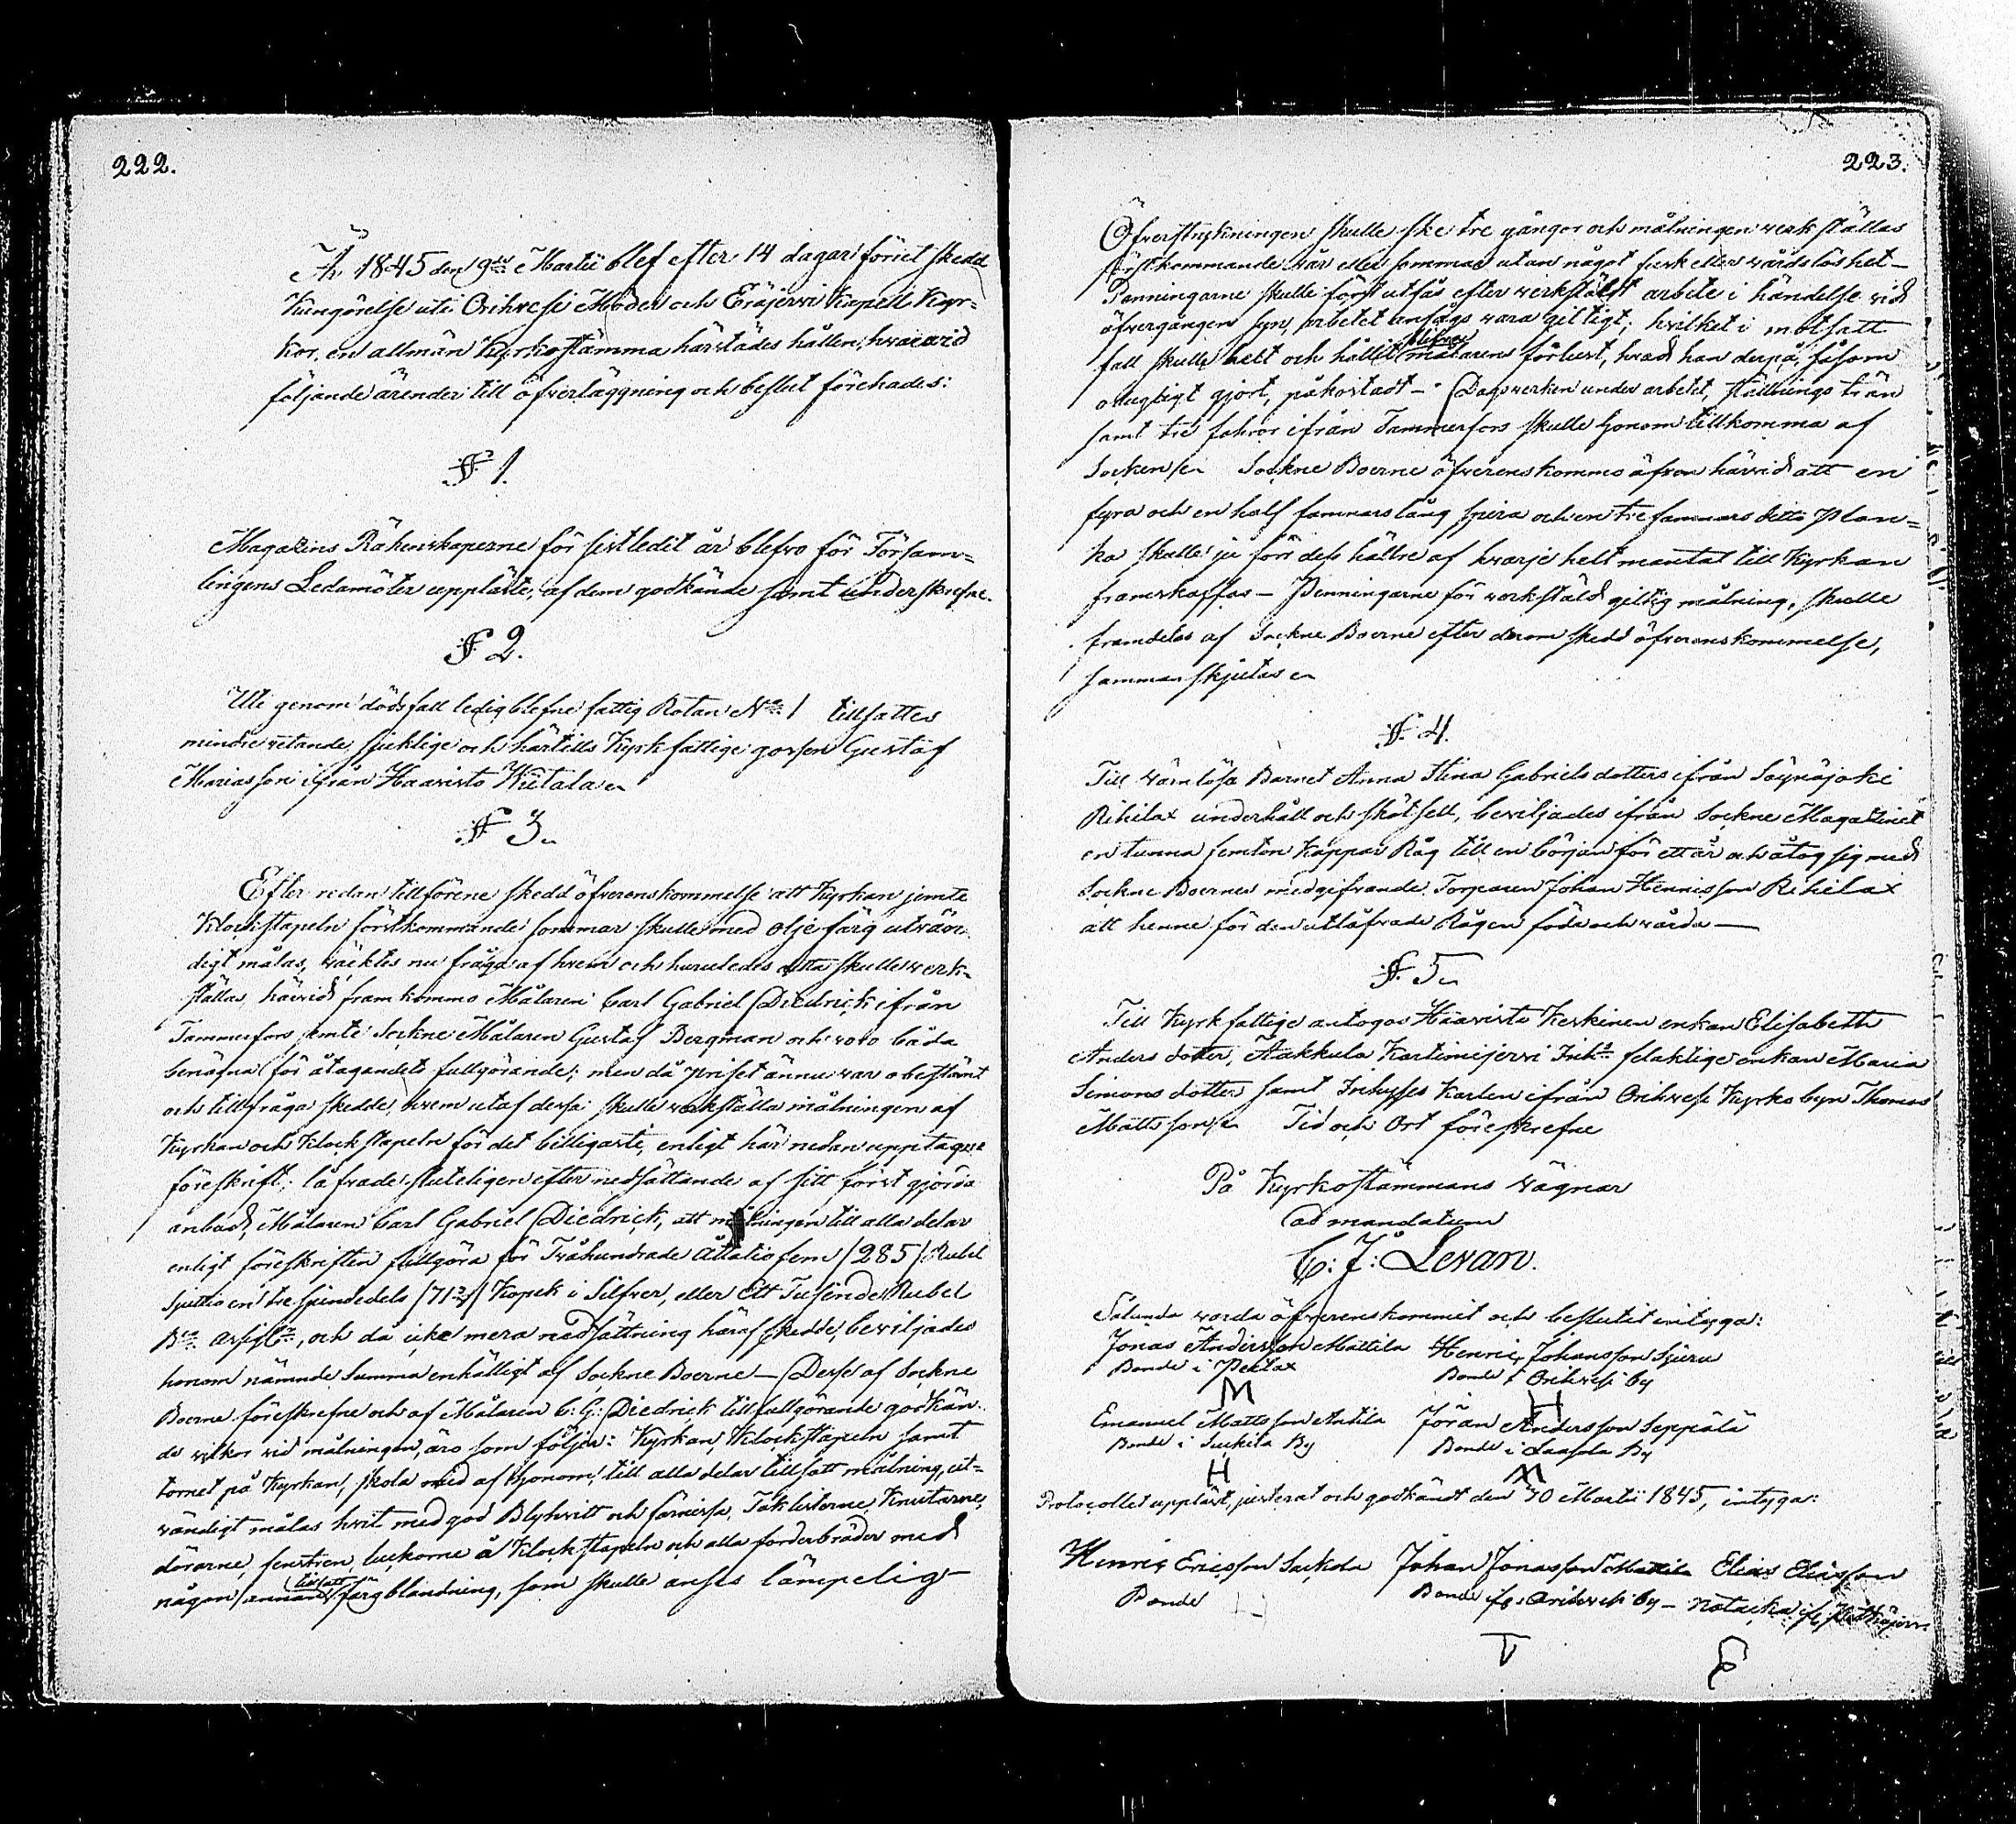 222.
År 1845 den 9de Martii blef efter 14 dagar förut skedd
Kungörelse uti Orihvesi Moder och Eräjervi Kapell Kyr-
kor, en allmän Kyrkostämma härstädes hållen, hvarvid
följande ärender till öfverläggning och beslut förehades:
§ 1.
Magazins Räkenskaperne för sistledit år blefvo för Försam-
lingens Ledamöter upplåste, af dem godkände samt underskrefne.
§ 2.
Uti genom dödsfall ledigblefne fattig Rotan No 1 tillsattes
mindre vetande, sjuklige och härtills Kyrkfattige gossen Gustaf
Mariasson ifrån Haavisto Kietala
§ 3.
Efter redan tillförene skedd öfverenskommelse att Kyrkan jemte
Klockstapeln förstkommande sommar skulle med oljefärg utvän-
digt målas, väcktes nu fråga af hvem och huruledes detta skulle verk-
ställas, härvid framkommo Målaren Carl Gabriel Diedrick ifrån
Tammerfors jemte Sockne Målaren Gustaf Bergman och voro båda
benäfna för åtagandets fullgörande; men då priset ännu var obestämt
och tillfråga skedde, hvem utaf dessa skulle verkställa målningen af
Kyrkan och Klockstapeln för det billigaste, enligt här nedan upptagne
föreskrift; låfvade sluteligen efter nedsättande af sitt först gjorda
anbud, Målaren Carl Gabriel Diedrick, att målningen till alla delar
enligt föreskriften fullgöra för Tvåhundrade åttatio fem /285/ Rubel
Sjuttio en tre sjundedels /71 3/7/ Kopek i Silfver, eller Ett Tusende Rubel
Bco assigt:, och då icke mera nedsättning häraf skedde, beviljades
honom nämnde Summa enhälligt af Sockne Boerne — Desse af Sockne
Boerne föreskrefne och af Målaren C: G: Diedrick till fullgörande godkän-
de vilkor vid målningen, äro som följer: Kyrkan, Klockstapeln samt
tornet på Kyrkan, skola med af honom, till alla delar tillsatt målning, ut-
vändigt målas hvit med god Blyhvitt och fernissa, Taklisterne, Knutarne,
dörarne, fenstren luckorne å Klockstapeln och alla foderbräder med
någon annan tillsatt färgblandning, som skulle anses lämpelig —
223.
Öfverstrykningen skulle ske tre gångor och målningen verkställas
förstkommande vår eller sommar utan något fusk eller vårdslöshet —
Penningarne skulle först utfås efter verkstäldt arbete i händelse vid
öfvergången syn, arbetet ansågs vara giltigt, hvilket i motsatt
fall skulle helt och hållit blifva målarens förlust, hvad han derpå, såsom
odugligt gjort, påkostadt — Dagsverken under arbetet, ställnings trän
samt tre fohror ifrån Tammerfors skulle honom tillkomma af
Socknen Sockne Boerne öfverenskommo äfven härvid att en
fyra och en half famnars lång spira och en tre famnars ditto plan-
ka skulle ju förr dess hällre af hvarje helt mantal till Kyrkan
framskaffas — Penningarne för verkstäld giltig målning, skulle
framdeles af Sockne Boerne efter derom skedd öfverenskommelse,
sammanskjutas
§ 4.
Till värnlösa Barnet Anna Stina Gabriels dotters ifrån Säynäjoki
Rihilax underhåll och skötsell, beviljades ifrån Sockne Magazinet
en tunna femton Kappar Råg till en början för ett år och åtog sig med
Sockne Boernes medgifvande Torparen Johan Hennisson Rihilax
att henne för den utlåfvade Rågen föda och vårda —
§ 5
Till Kyrkfattige antogos Haavisto Keskinen enkan Elisabeth
Anders dotter, Aakkula Kartimojervi Inh: felaktige enkan Maria
Simons dotter samt Inhyses Karlen ifrån Orihvesi Kyrko byn Thomas
Mattsson Tid och Ort föreskrefne
På Kyrkostämmans vägnar
ad mandatum
C: J: Levan.
Sålunda vorda öfverenskommit och beslutit intyga:
Jonas Andersson Mattila Henric Johansson Sjura
Bonde i Pehlax Bonde i Orihvesi by
M H
Emanuel Mattsson Antila Jöran Andersson Seppälä
Bonde i Suckila By Bonde i Laasola By
H M
Protocollet uppläst, justerat och godkändt den 30 Martii 1845, intyga:
Henric Ericsson Sackola Johan Jonasson Mattila Elias Eliasson
Bonde Bonde ifr: Orihvesi by —